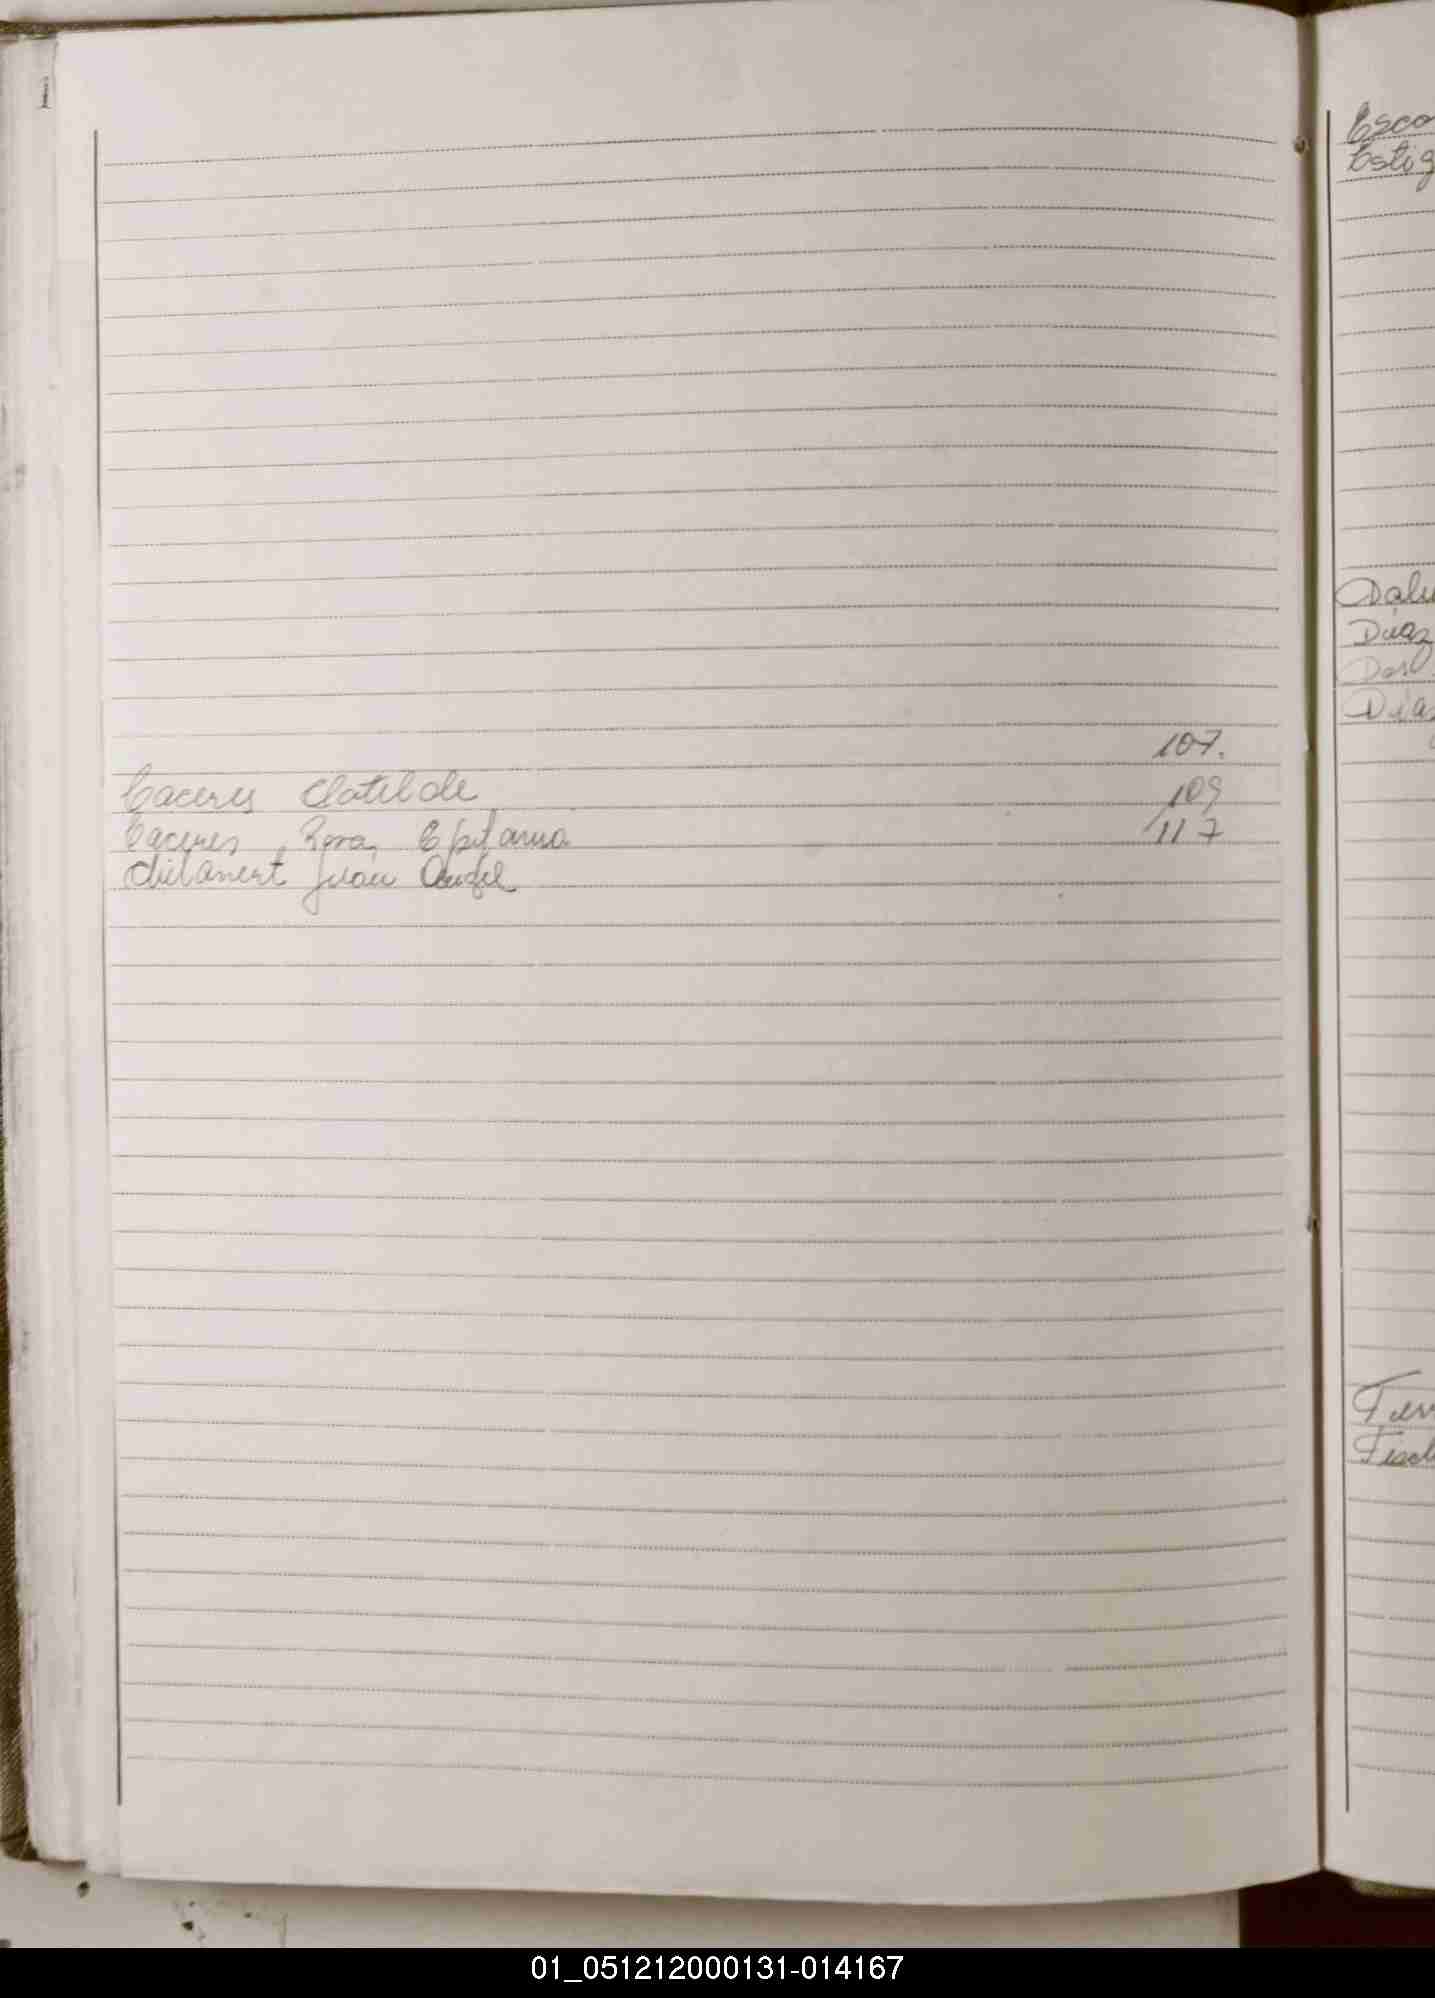 107.
Caceres Clotilde 109
Caceres, Rosa, Epifania 117
Juan Angel
Esco
Estig
Dalu
Diaz
Dos
Diaz
Fisch
01_051212000131-014167